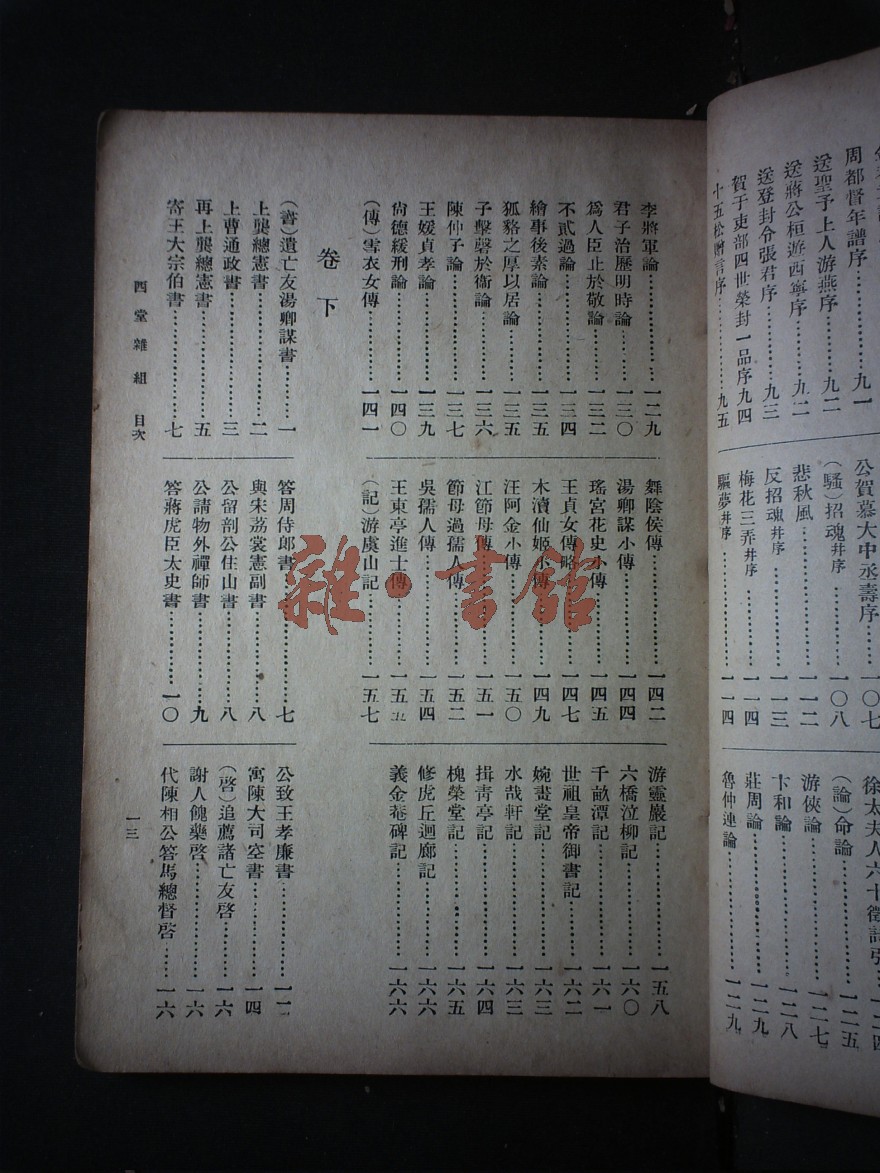 周都督年譜序…………九一
送聖予上人游燕序………九二
送蔣公桓遊西寧序………九二
送登封令張君序…………九三
賀于吏部四世榮封一品序九四
十五松贈言序…………九五
公賀慕大中丞壽序………一〇七
(騷)招魂幷序…………一〇八
悲秋風…………一一二
反招魂幷序…………一一三
梅花三弄幷序…………一一四
驅夢幷序…………一一四
(論)命論…………一二五
游俠論…………一二七
卞和論…………一二八
莊周論…………一二九
魯仲連論…………一二九
李將軍論…………一二九
君子治歷明時論…………一三〇
爲人臣止於敬論…………一三二
不貳過論…………一三四
繪事後素論…………一三五
狐貉之厚以居論…………一三五
子擊磬於衞論…………一三六
陳仲子論…………一三七
王媛貞孝論…………一三九
尙德緩刑論…………一四〇
(傳)雪衣女傳…………一四一
舞陰侯傳…………一四二
湯卿謀小傳…………一四四
瑤宮花史小傳…………一四五
王貞女傳略…………一四七
木瀆仙姬小傳…………一四九
汪阿金小傳…………一五〇
江節母傳…………一五一
節母過孺人傳…………一五二
吳孺人傳…………一五四
王東亭進士傳…………一五五
(記)游虞山記…………一五七
游靈巖記…………一五八
六橋泣柳記…………一六〇
千畝潭記…………一六一
世祖皇帝御書記…………一六二
婉畫堂記…………一六三
水哉軒記…………一六三
揖靑亭記…………一六四
槐榮堂記…………一六五
修虎丘迴廊記…………一六六
義金菴碑記…………一六六
卷下
(書)遺亡友湯卿謀書…………一
上龔總憲書…………二
上曹通政書…………三
再上龔總憲書…………五
寄王大宗伯書…………七
答周侍郎書…………七
與宋荔裳憲副書…………八
公留剖公住山書…………八
公請物外禪師書…………九
答蔣虎臣太史書…………一〇
公致王孝廉書…………一一
寓陳大司空書…………一四
(啓)追薦諸亡友啓…………一六
謝人餽藥啓…………一六
代陳相公答馬總督啓……一六
西堂雜組 目次
一三
雜·書館